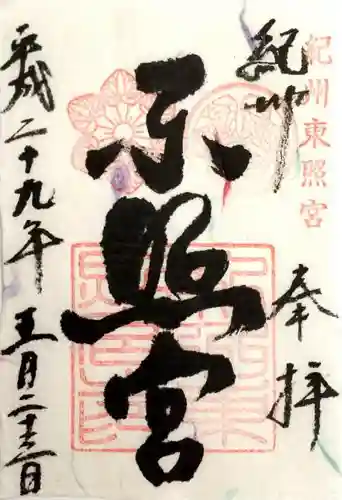 紀州東照宮
紀州
奉拝
東照宮
平成二十九年五月二十三日